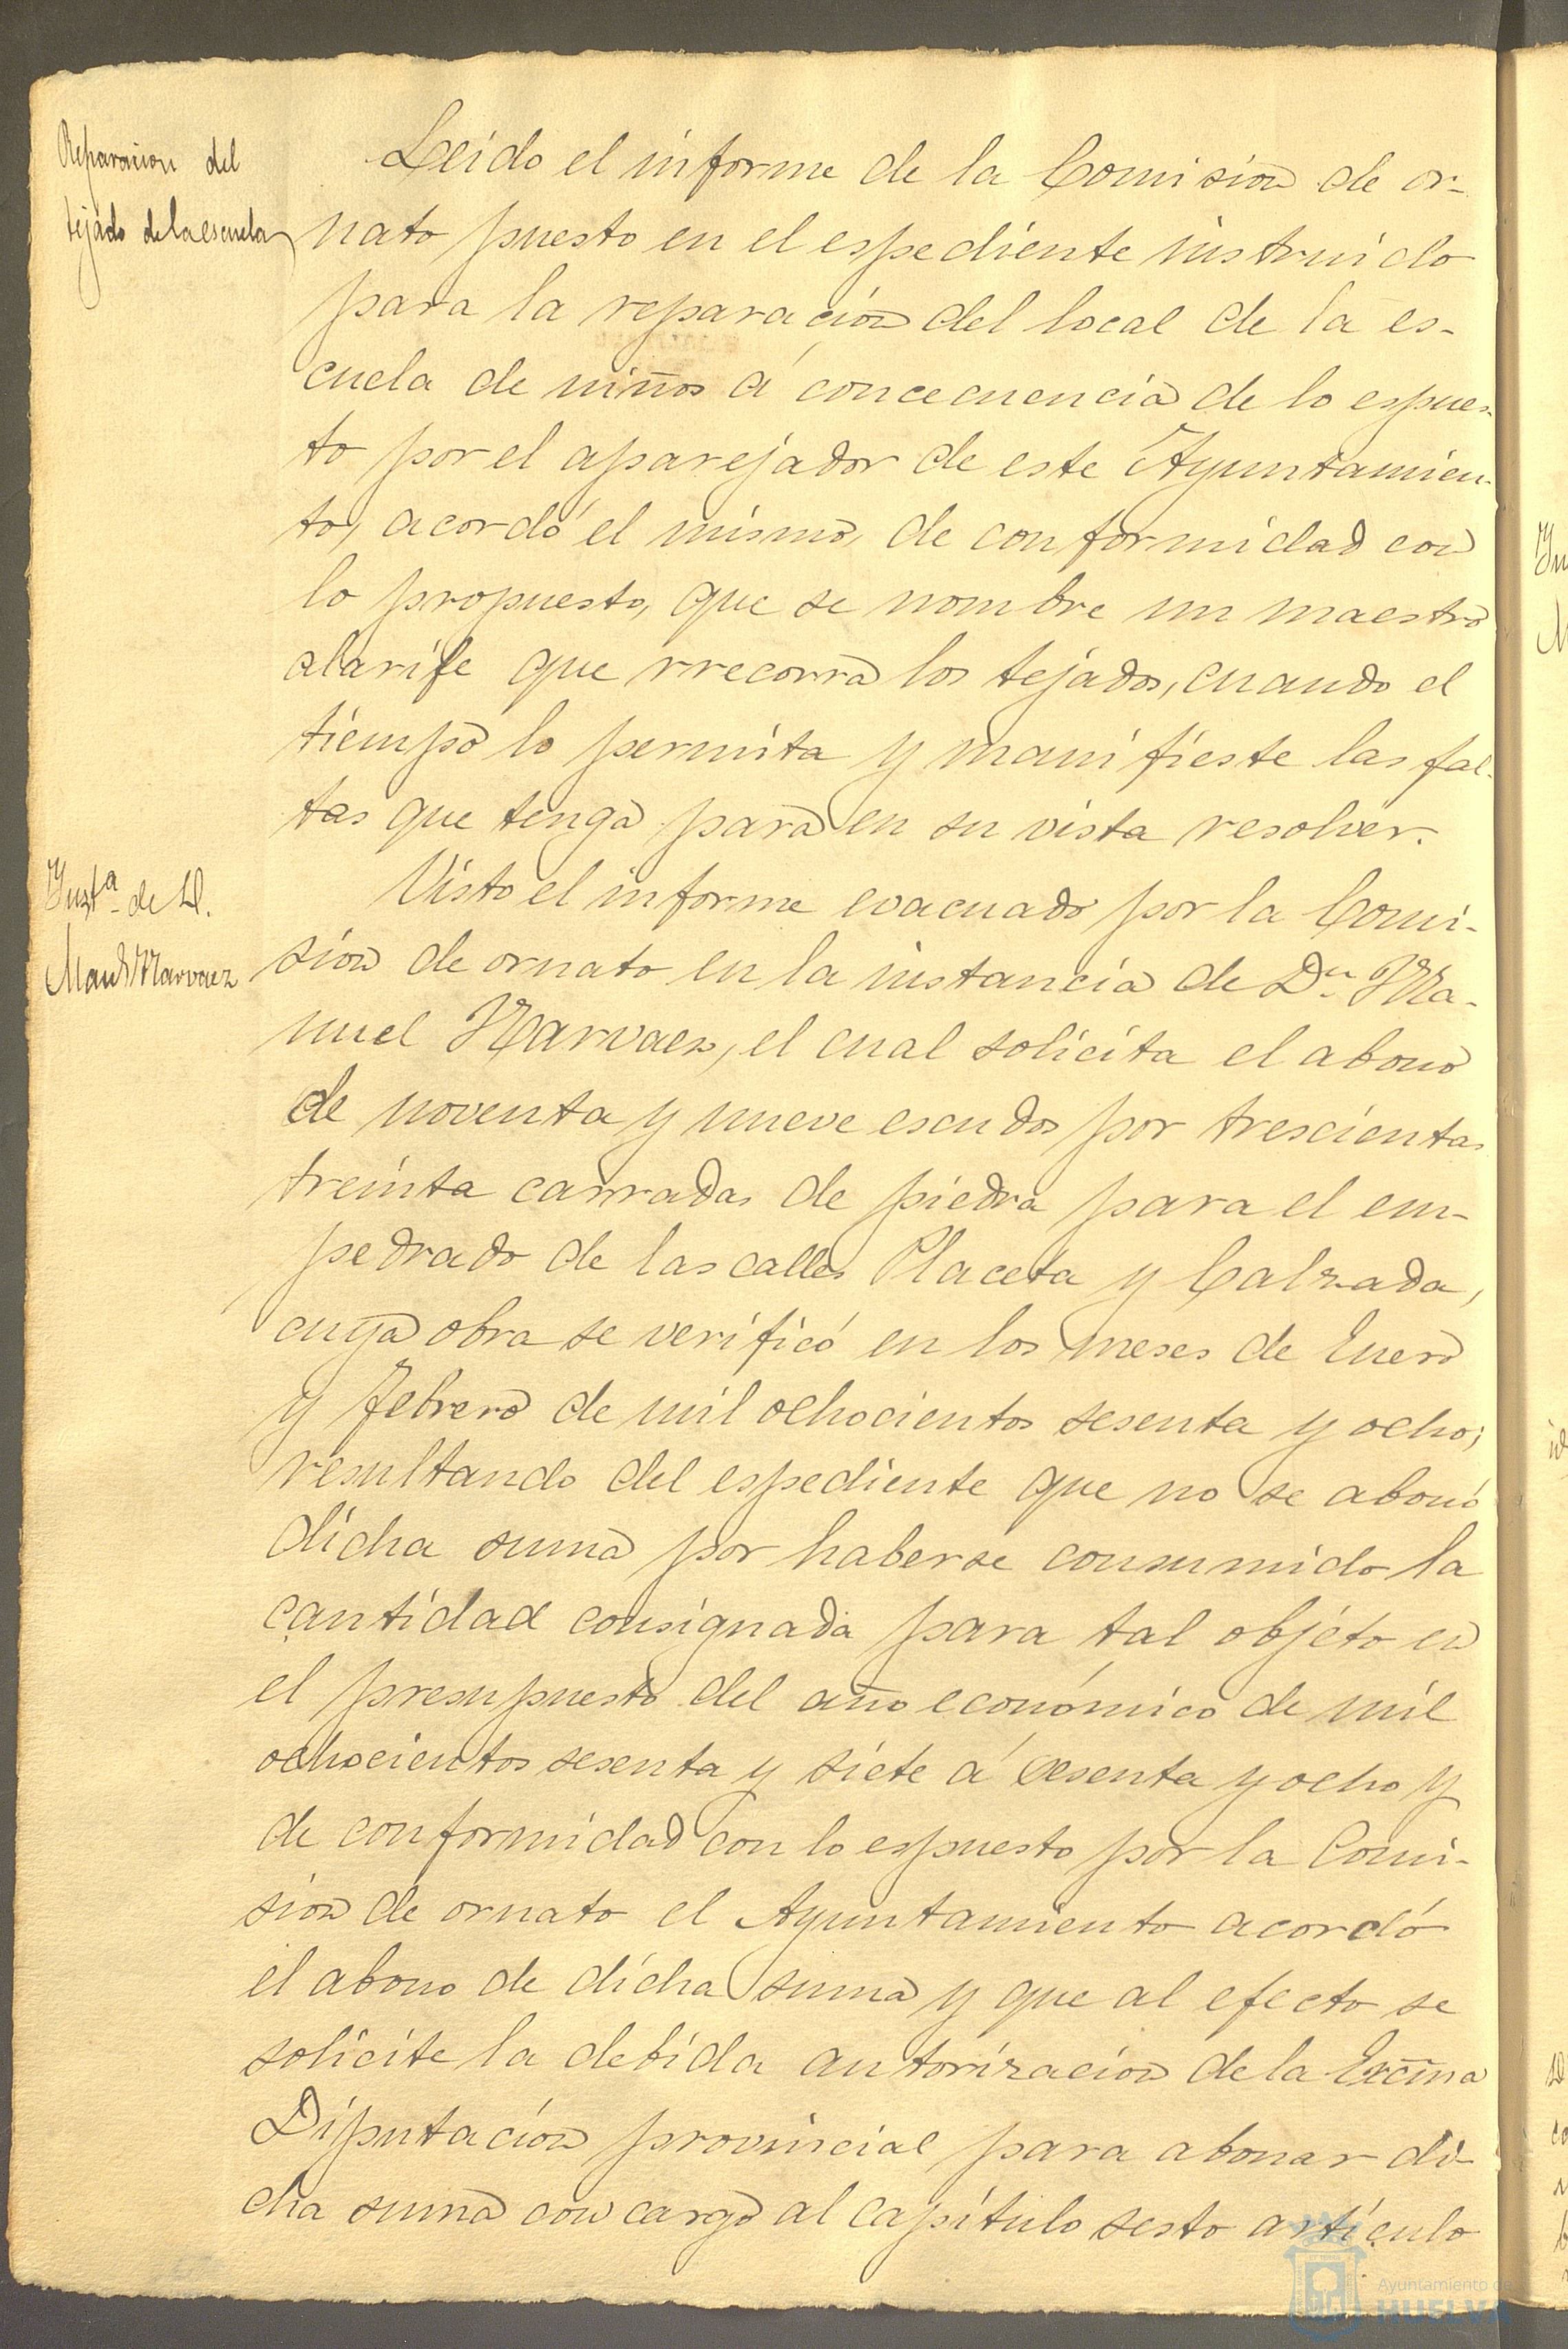 Reparacion del
tejado de la escuela
Leido el informe de la Comision de or-
nato puesto en el espediente instruido
para la reparación del local de la es-
cuela de niños á concecuencia de lo espues-
to por el aparejador de este Ayuntamien-
to, acordó el mismo, de conformidad con
lo propuesto, que se nombre un maestro
alarife que rrecorra los tejados, cuando el
tiempo lo permita y manifieste las fal-
tas que tenga para en su vista resolver.
Inst.ª de D.
Man.l Narvaez
Visto el informe evacuado por la Comi-
sion de ornato en la instancia de D.n Ma-
nuel Narvaez, el cual solicita el abono
de noventa y nueve escudos por trescientas
treinta carradas de piedra para el em-
pedrado de las calles Placeta y Calzada,
cuya obra se verificó en los meses de Enero
y Febrero de mil ochocientos sesenta y ocho;
resultando del espediente que no se abonó
dicha suma por haberse consumido la
cantidad consignada para tal objeto en
el presupuesto del año económico de mil
ochocientos sesenta y siete á sesenta y ocho y
de conformidad con lo espuesto por la Comi-
sion de ornato el Ayuntamiento acordó
el abono de dicha suma y que al efecto se
solicite la debida autorizacion de la Excma
Diputación provincial para abonar di-
cha suma con cargo al capítulo sesto artículo
Ayuntamiento de
HUELVA